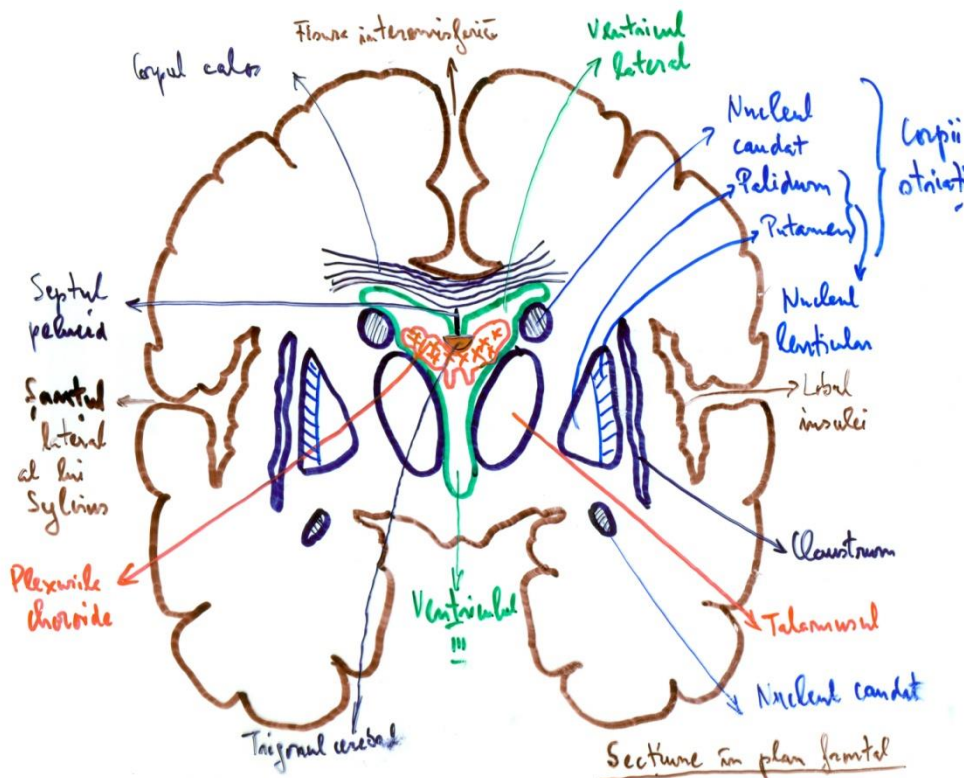 Fisura interemisferică
Corpul calos
Ventricul
lateral
Nucleul
caudat
Palidum
Putamen
Corpii
striați
Nucleul
lenticular
Septul
pelucid
Șanțul
lateral
al lui
Sylvius
Lobul
insulei
Plexurile
choroide
Ventriculul
III
Claustrum
Talamusul
Nucleul caudat
Trigonul cerebral
Secțiune în plan frontal